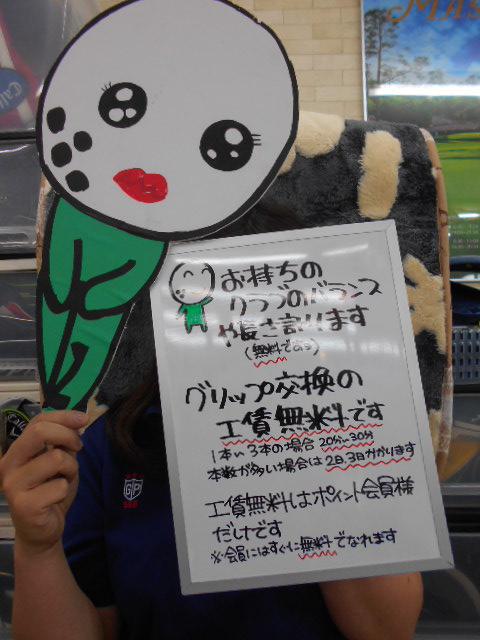 MAS
Calla
お持ちの
クラブのバランス
や長さ計ります
(無料です)
グリップ交換の
工賃無料です
1本〜3本の場合 20分〜30分
本数が多い場合は 2日、3日かかります
工賃無料はポイント会員様
だけです
※会員にはすぐに無料でなれます
GP